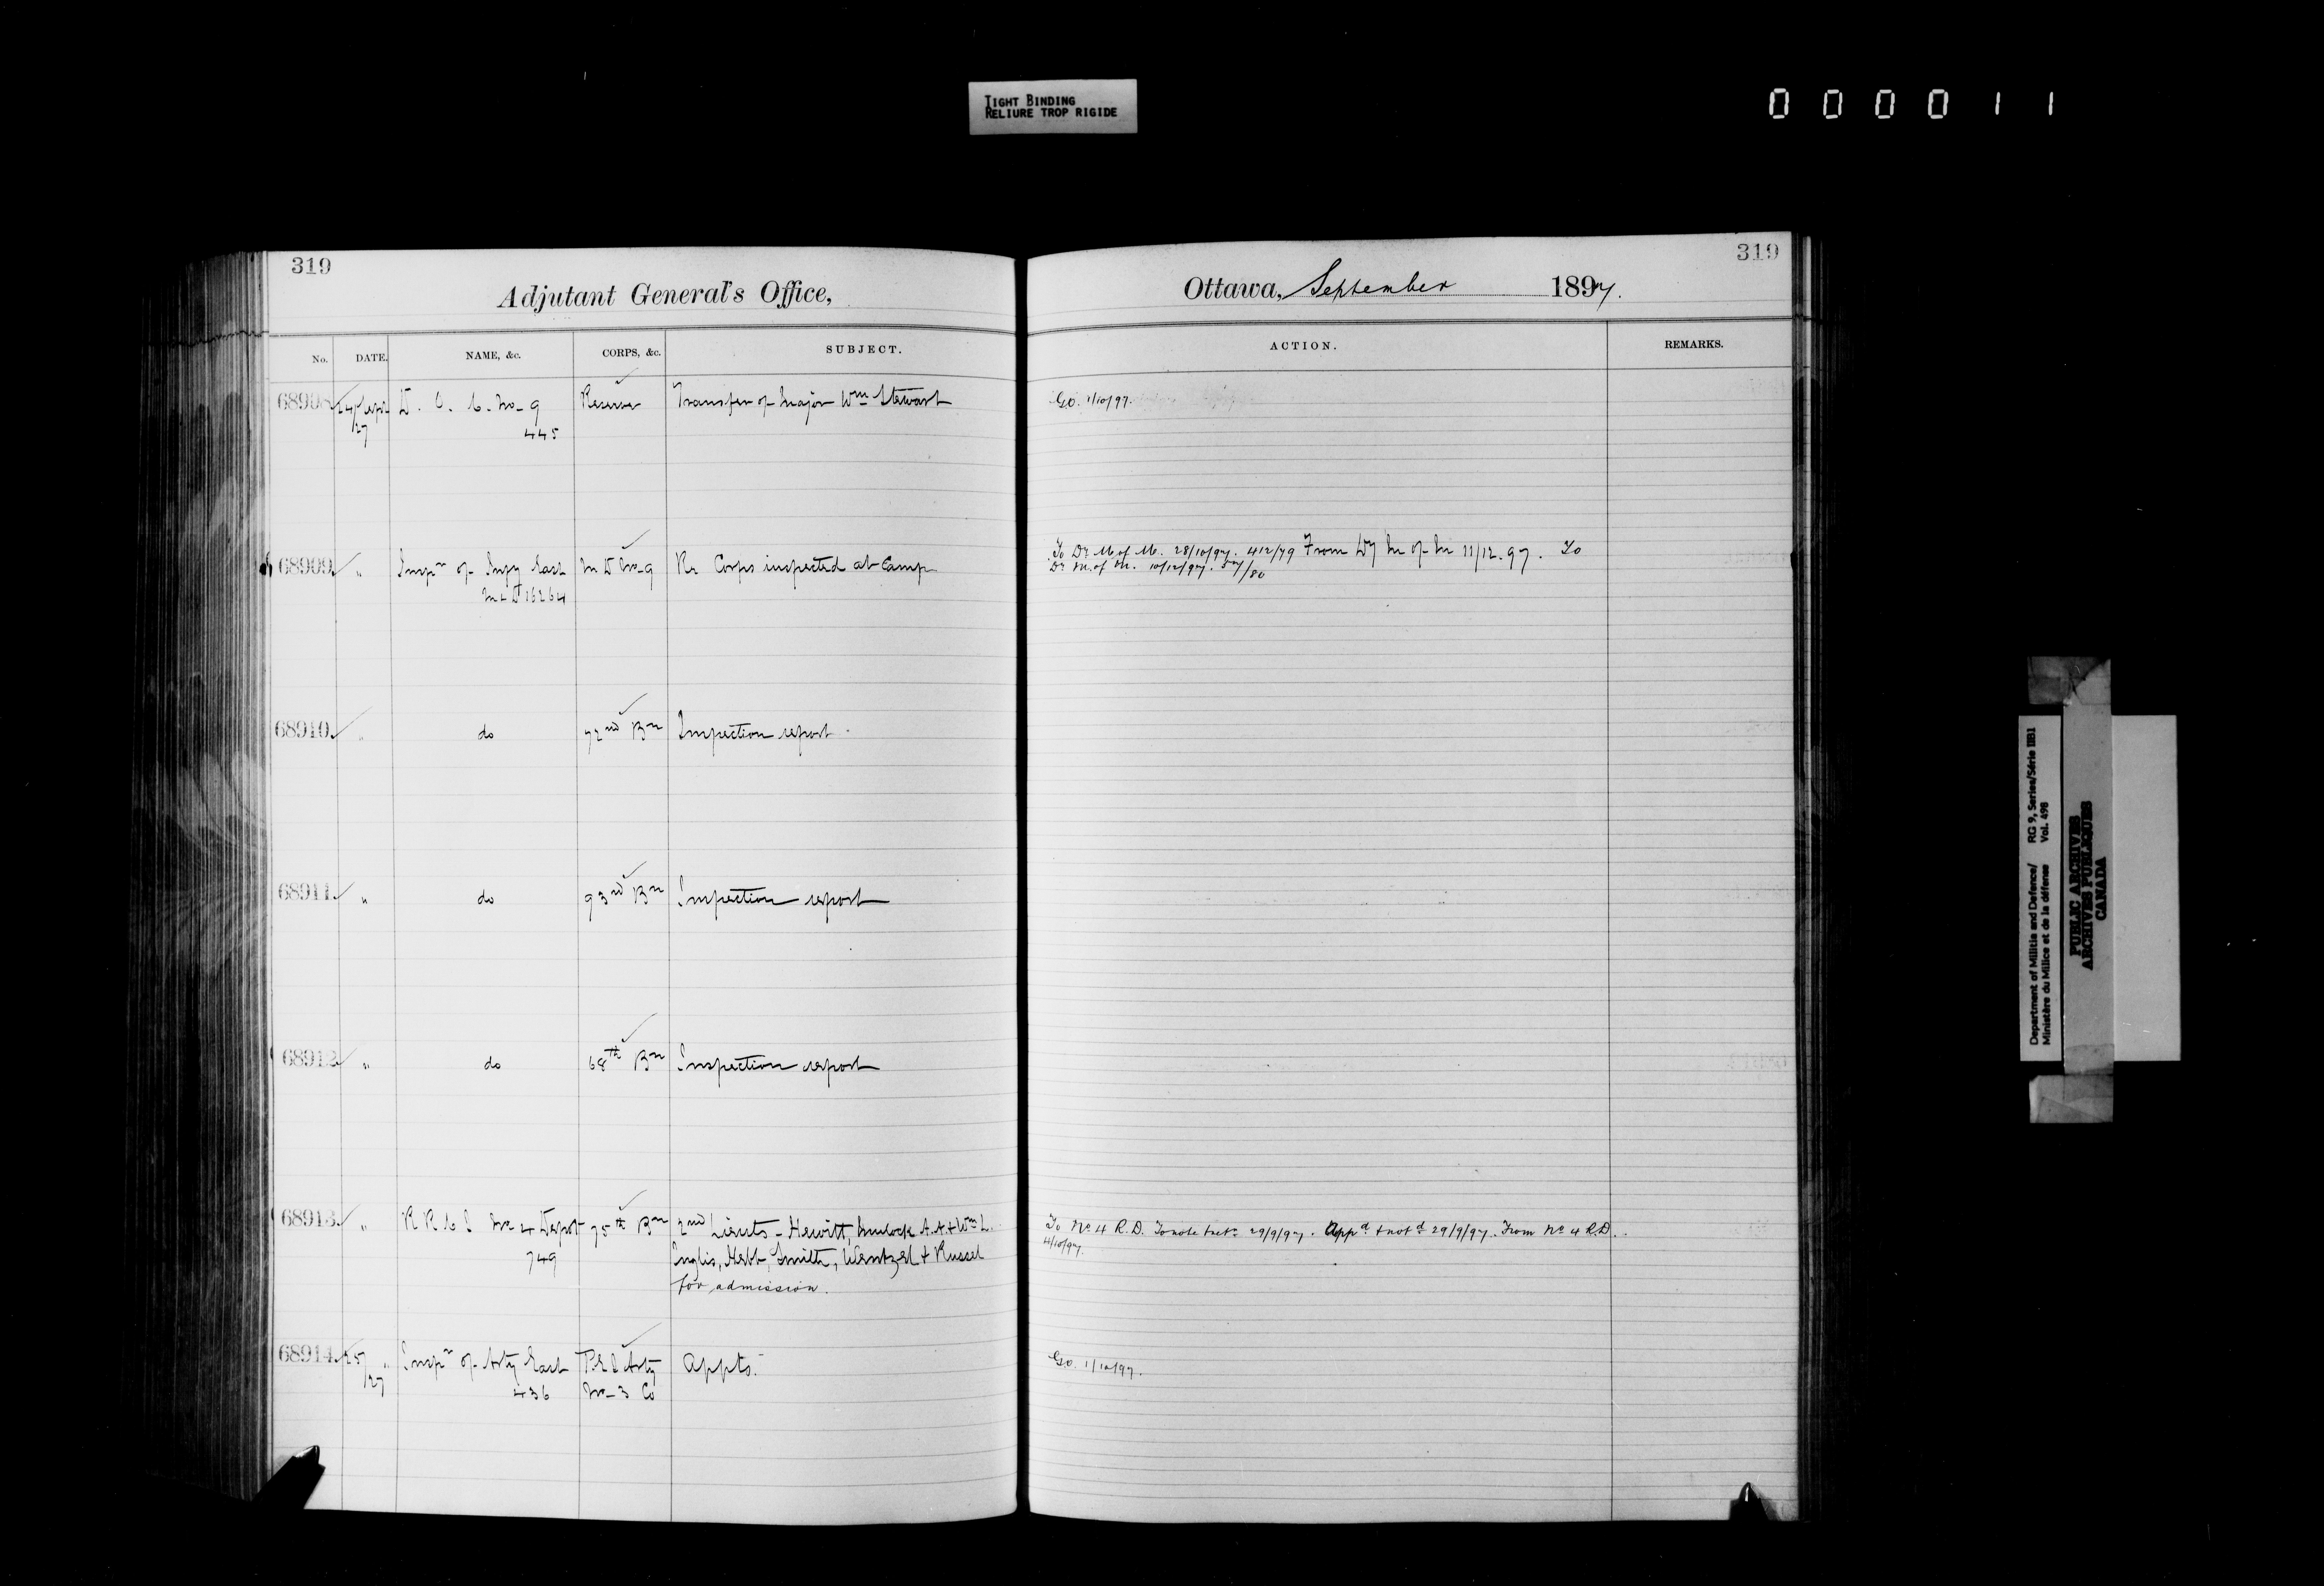 TIGHT BINDING
RELIURE TROP RIGIDE
000011
319
Adjutant General's Office,
No. DATE. NAME, &c. CORPS, &c. SUBJECT.
68908 24 Sept/27 D. O. C. No. 9 Reserve Transfer of Major Wm Stewart
445
68909 " Inspr of Infy East M D No. 9 Re Corps inspected at Camp
M & D 16264
68910 " do 72nd Bn Inspection report.
68911 " do 93rd Bn Inspection report
68912 " do 68th Bn Inspection report
68913 " R R C I No 4 Depot 75th Bn 2nd Lieuts - Hewitt, Mulock A.A. & Wm L.
749 Inglis, Hebb, Smith, Wentzel & Russel
for admission.
68914 25/27 " Inspr of Arty East P.E.I Arty Appts.
436 No. 3 Co
319
Ottawa, September 1897.
ACTION. REMARKS.
G.O. 1/10/97.
To Dy M. of M. 28/10/97. 412/79 From Dy M of M 11/12.97. To
Dy M. of M. 10/12/97. /80
To No 4 R.D. To note & retn 29/9/97. Appd & notd 29/9/97. From No 4 R.D.
4/10/97.
G.O. 1/10/97.
Department of Militia and Defence/ RG 9, Series/Série IIB1
Ministère du Milice et de la défense Vol. 498
PUBLIC ARCHIVES
ARCHIVES PUBLIQUES
CANADA